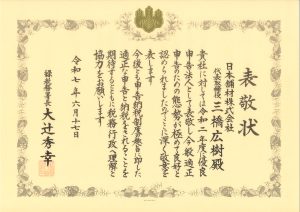 表敬状
日本舗材株式会社
代表取締役 三橋広樹殿
貴社に対しては令和二年度に優良
申告法人として表敬し今般適正
申告のための態勢が極めて良好と
認められましたので深く敬意を
表します
今後とも申告納税制度の趣旨に即した
適正な申告と納税をされることを
期待するとともに税務行政へ理解と
協力をお願いします
令和七年六月十七日
税務署長 大辻秀幸